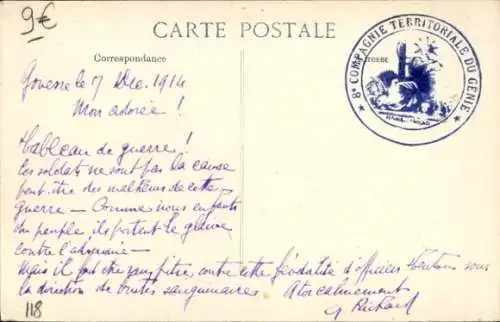 9€
CARTE POSTALE
Correspondance
Adresse
8e COMPAGNIE TERRITORIALE DU GÉNIE
le 7 Dec. 1914
Mon adorée !
Tableau de guerre !
Ces soldats ne sont pas la cause
peut être des malheurs de cette
guerre – Comme nous enfants
du peuple ils portent le glaive
contre l'
Mais il faut être sans pitié contre cette féodalité d'officiers sous
la direction de brutes sanguinaires
G Richard
118